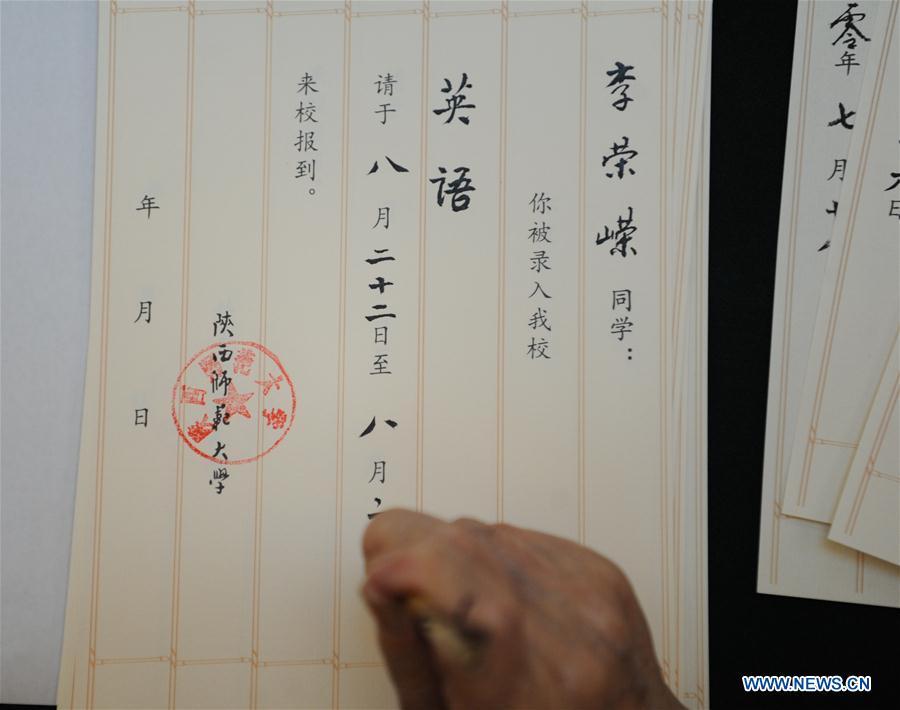 李荣嵘同学：
你被录入我校
英语
请于八月二十二日至八月二
来校报到。
陕西师范大学
年月日
零年七月
日
WWW.NEWS.CN